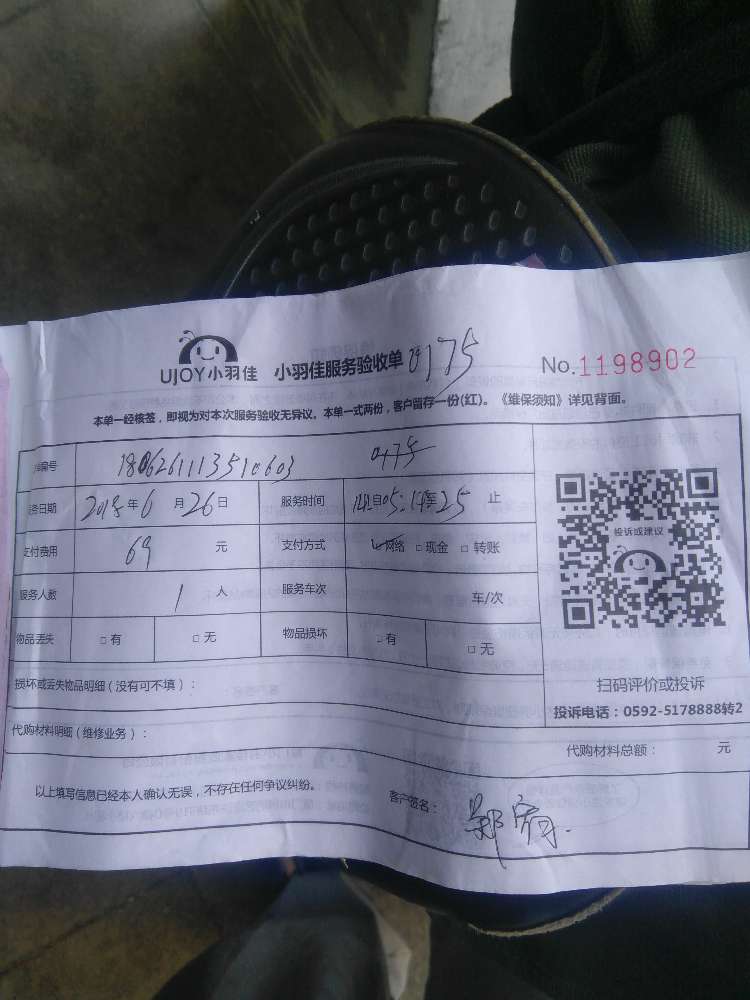 UJOY小羽佳 小羽佳服务验收单 0175
No.1198902
本单一经核签，即视为对本次服务验收无异议。本单一式两份，客户留存一份(红)。《维保须知》详见背面。
编号 0175
务日期 2018年6月26日 服务时间 自05: 至25止
支付费用 69元 支付方式 网络 □现金 □转账
服务人数 1人 服务车次 车/次
物品丢失 □有 □无 物品损坏 □有 □无
损坏或丢失物品明细(没有可不填)：
代购材料明细(维修业务)：
投诉或建议
扫码评价或投诉
投诉电话：0592-5178888转2
代购材料总额： 元
以上填写信息已经本人确认无误，不存在任何争议纠纷。 客户签名：